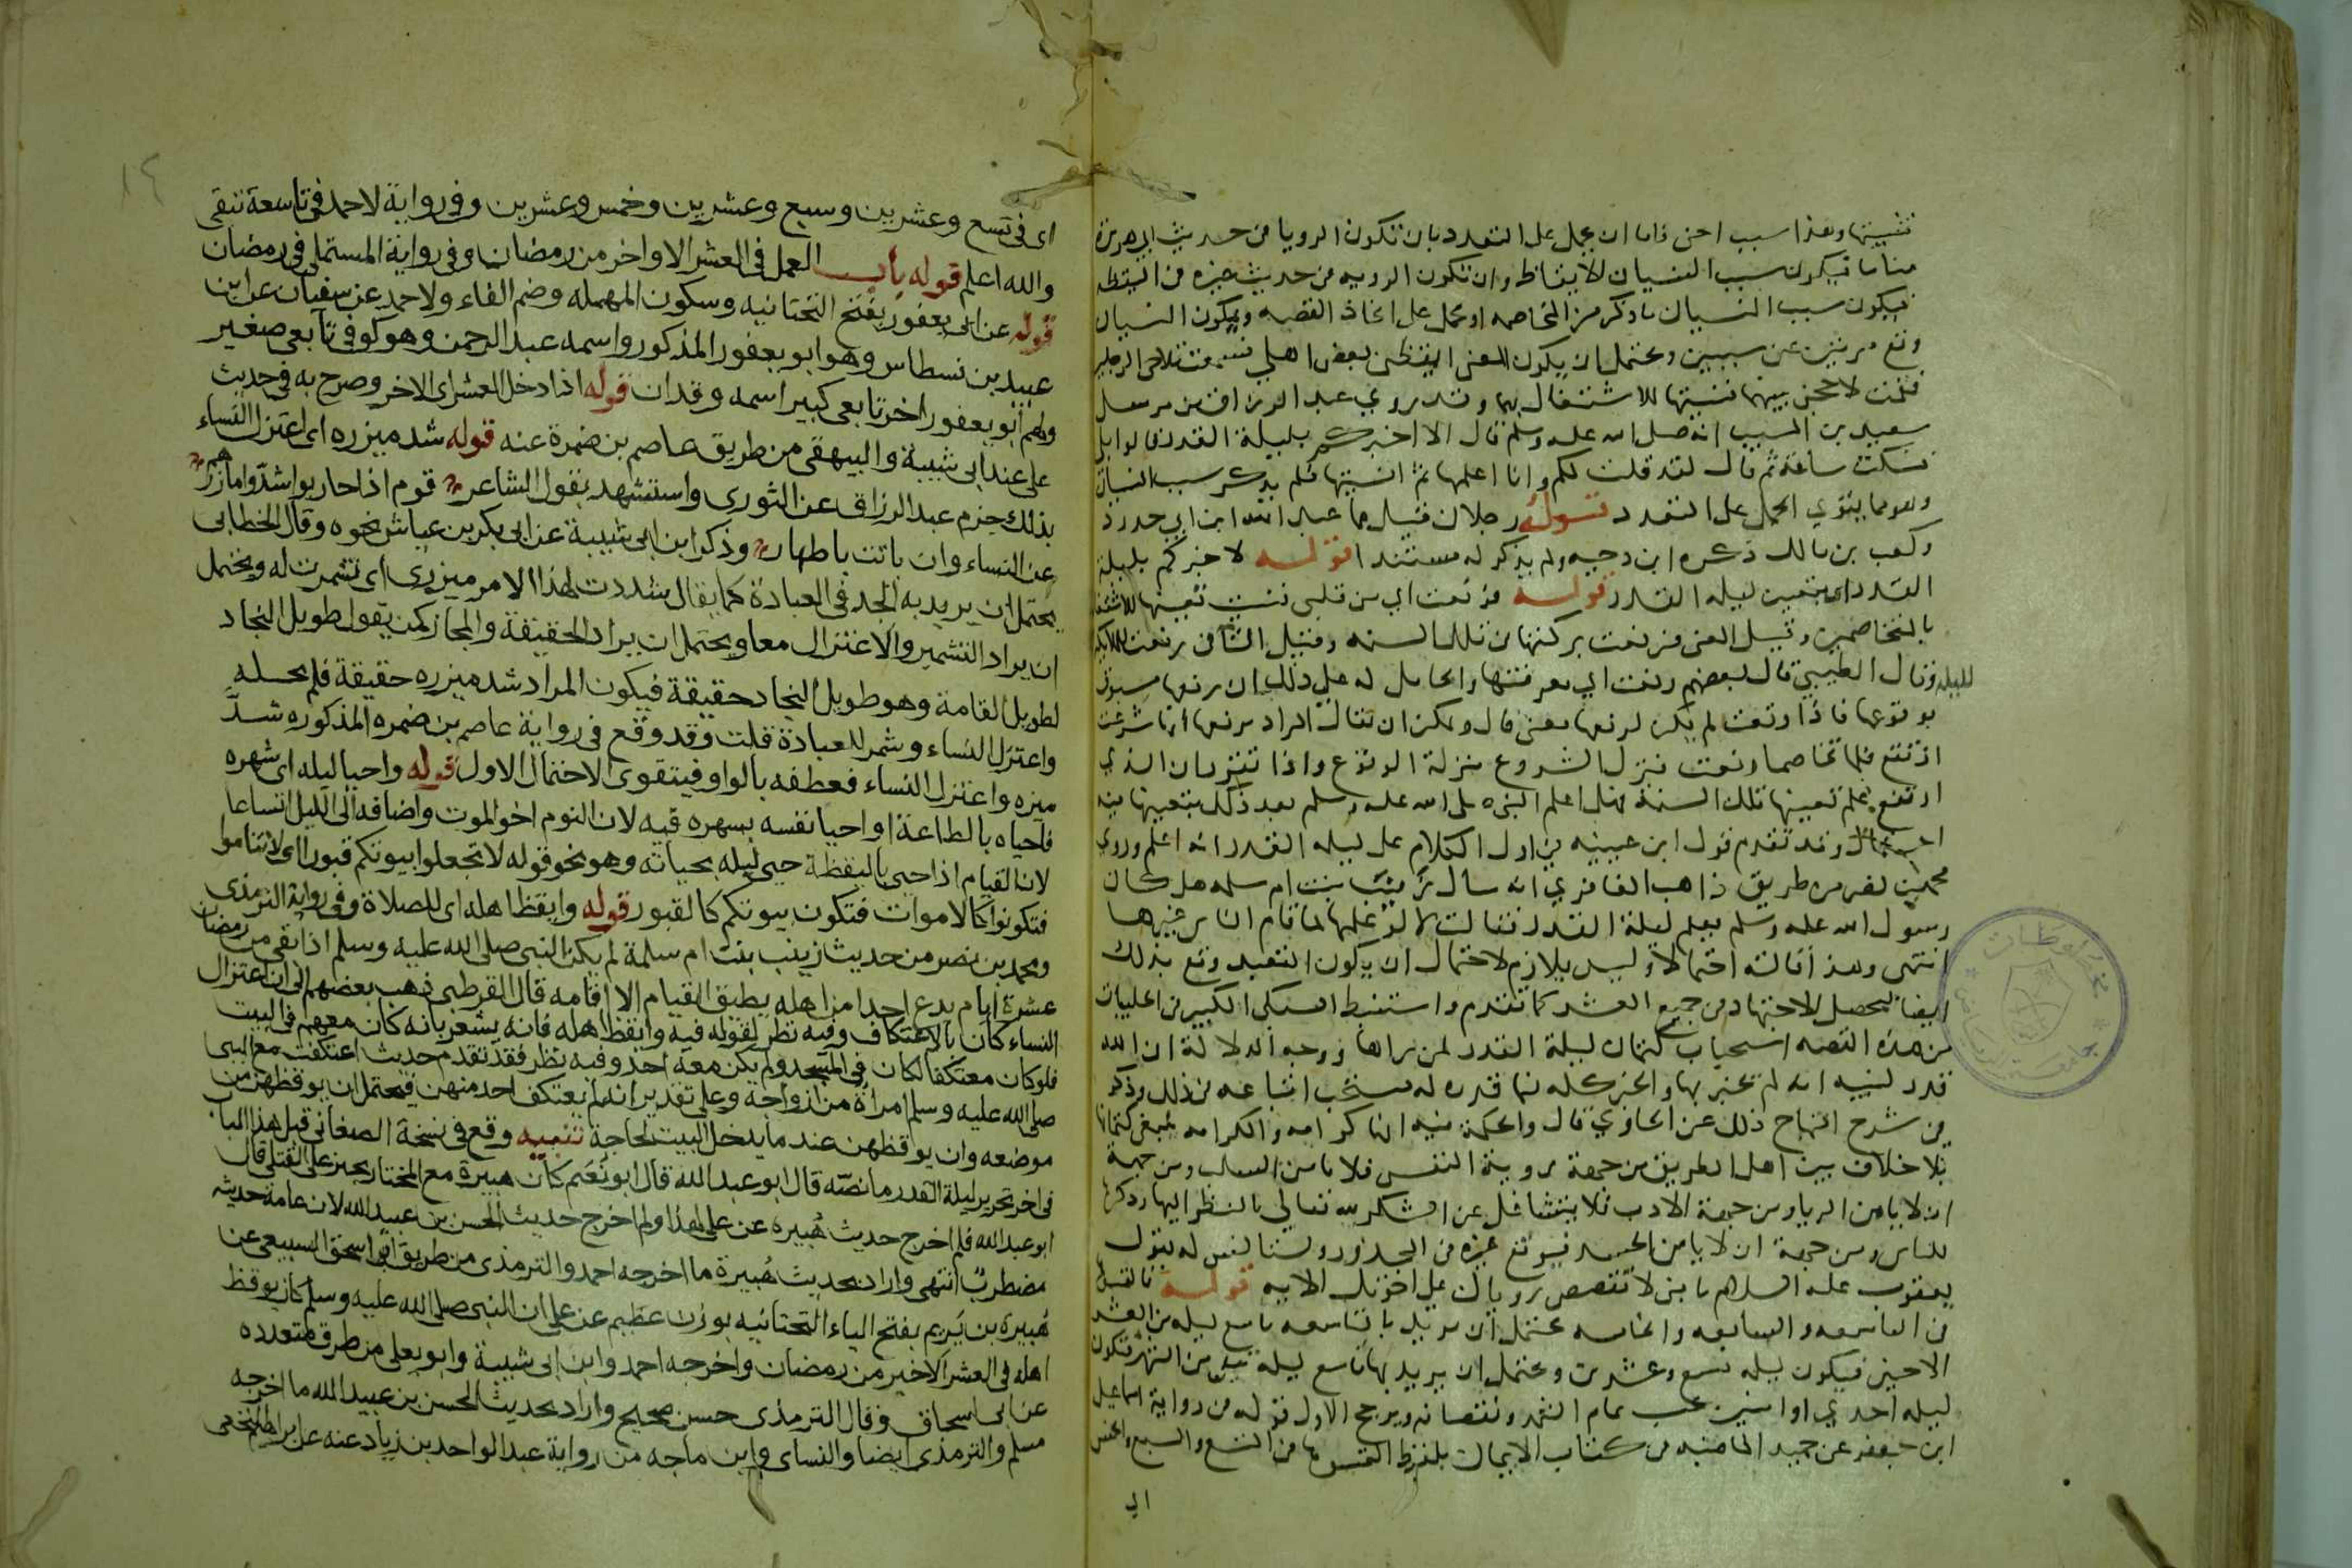 فنسيتها وهذا سبب اخر فاما ان يحمل على التعدد بان تكون الرويا في حديث ابي هريرة
مناما فيكون سبب النسيان الايقاظ وان تكون الرويه في حديث غيره في اليقظه
فيكون سبب النسيان ما ذكر من المخاصمه او يحمل على اتحاد القصه ويكون النسيان
وقع مرتين عن سببين ويحتمل ان يكون المعنى ايقظني بعض اهلي فسمعت تلاحي الرجلين
فقمت لاحجز بينهما فنسيتها للاشتغال بهما وقد روي عبد الرزاق من مرسل
سعيد بن المسيب انه صلى الله عليه وسلم قال الا اخبركم بليلة القدر قالوا بلى
فسكت ساعة ثم قال لقد قلت لكم وانا اعلمها ثم انسيتها فلم يذكر سبب النسيان
وهو مما يقوي الحمل على التعدد قوله رجلان قيل هما عبد الله ابن ابي حدرد
وكعب بن مالك ذكره ابن دحيه ولم يذكر له مستندا قوله لاخبركم بليلة
القدر اي بتعيين ليله القدر قوله فرفعت اي من قلبي فنسيت تعيينها للاشتغال
بالمتخاصمين وقيل المعنى فرفعت بركتها في تلك السنه وقيل التا في رفعت للملايكة
لا لليله وقال الطيبي قال بعضهم رفعت اي معرفتها والحامل له على ذلك ان رفعها مسبوق
بوقوعها فاذا وقعت لم يكن لرفعها معنى قال ويمكن ان يقال المراد برفعها انها شرعت
ان تقع فلما تخاصما رفعت فنزل الشروع منزلة الوقوع واذا تقرر ان الذي
ارتفع علم تعيينها تلك السنة فهل اعلم النبي صلى الله عليه وسلم بعد ذلك بتعيينها فيه
احتمال وقد تقدم قول ابن عيينه في اول الكلام على ليله القدر انه اعلم وروي
محمد بن نصر من طريق واهب المغافري انه سال زينب بنت ام سلمه هل كان
رسول الله عليه وسلم يعلم ليلة القدر فقالت لا لو علمها لما قام الناس غيرها
انتهى وهذا قالته احتمالا وليس بلازم لاحتمال ان يكون التعبد وقع بذلك
ايضا ليحصل الاجتهاد في جميع العشر كما تقدم واستنبط السبكي الكبير في الحلبيات
من هذه القصه استحباب كتمان ليلة القدر لمن راها ووجه الدلالة ان الله
قدر لنبيه انه لم يخبر بها والخير كله فيما قدره له فيستحب اتباعه في ذلك وذكر
في شرح المنهاج ذلك عن الحاوي قال والحكمة فيه انها كرامه والكرامه ينبغي كتمانها
بلا خلاف بين اهل الطريق من جهة روية النفس فلا يامن السلب ومن جهة
ان لا يامن الريا ومن جهة الادب فلا يتشاغل عن الشكر لله تعالى بالنظر اليها وذكرها
للناس ومن جهة ان لا يامن الحسد فيوقع غيره في المحذور ويستانس له بقول
يعقوب عليه السلام يا بني لا تقصص روياك على اخوتك الايه قوله فالتمسوها
في التاسعه والسابعه والخامسه يحتمل ان يريد بالتاسعه تاسع ليله من العشر
الاخير فيكون ليله تسع وعشرين ويحتمل ان يريد بها تاسع ليلة تبقى من الشهر فتكون
ليله احدي او اثنين بحسب تمام الشهر ونقصانه ويرجح الاول قوله في رواية اسماعيل
ابن جعفر عن حميد الماضيه في كتاب الايمان بلفظ التمسوها في التسع والسبع والخمس
اي
اى فى تسع وعشرين وسبع وعشرين وخمس وعشرين وفى رواية لاحمد فى تاسعة تبقى
والله اعلم قوله باب العمل فى العشر الاواخر من رمضان وفى رواية المستملى فى رمضان
قوله عن ابى يعفور بفتح التحتانيه وسكون المهمله وضم الفاء ولاحمد عن سفيان عن ابن
عبيد بن نسطاس وهو ابو يعفور المذكور واسمه عبد الرحمن وهو كوفى تابعى صغير
ولهم ابو يعفور اخر تابعى كبير اسمه وقدان قوله اذا دخل العشر اى الاخر وصرح به فى حديث
على عند ابى شيبة والبيهقى من طريق عاصم بن ضمرة عنه قوله شد ميزره اى اعتزل النساء
بذلك جزم عبد الرزاق عن الثورى واستشهد بقول الشاعر قوم اذا حاربوا شدوا مازرهم
عن النساء وان باتت باطهار وذكر ابن ابى شيبة عن ابى بكر بن عياش نحوه وقال الخطابى
يحتمل ان يريد به الجد فى العبادة كما يقال شددت لهذا الامر ميزرى اى تشمرت له ويحتمل
ان يراد التشمير والاعتزال معا ويحتمل ان يراد الحقيقة والمجاز كمن يقول طويل النجاد
لطويل القامة وهو طويل النجاد حقيقة فيكون المراد شد ميزره حقيقة فلم يحله
واعتزل النساء وشمر للعبادة قلت وقد وقع فى رواية عاصم بن ضمره المذكوره شد
ميزه واعتزل النساء فعطفه بالواو فيتقوى الاحتمال الاول قوله واحيا ليله اى شهره
فاحياه بالطاعة او احيا نفسه بسهره فيه لان النوم اخو الموت واضافه الى الليل اتساعا
لان القيام اذا حيى باليقظة حيى ليله بحياته وهو نحو قوله لا تجعلوا بيوتكم قبورا اى لا تناموا
فتكونوا كالاموات فتكون بيوتكم كالقبور قوله وايقظ اهله اى للصلاة وفى رواية الترمذى
ومحمد بن نصر من حديث زينب بنت ام سلمة لم يكن النبى صلى الله عليه وسلم اذا بقى من رمضان
عشرة ايام يدع احدا من اهله يطيق القيام الا اقامه قال القرطبى ذهب بعضهم الى ان اعتزال
النساء كان بالاعتكاف وفيه نظر لقوله فيه وايقظ اهله فانه يشعر بانه كان معهم فى البيت
فلو كان معتكفا لكان فى المسجد ولم يكن معه احد وفيه نظر فقد تقدم حديث اعتكفت مع النبى
صلى الله عليه وسلم امراة من ازواجه وعلى تقدير انه لم يعتكف احد منهن فيحتمل ان يوقظهن من
موضعه وان يوقظهن عند ما يدخل البيت لحاجة تنبيه وقع فى نسخة الصغانى قبل هذا الباب
فى اخر تحرير ليلة القدر ما نصه قال ابو عبد الله قال ابو نعيم كان هبيرة مع المختار يجهز على القتلى قال
ابو عبد الله فلم اخرج حديث هبيره عن على لهذا ولم اخرج حديث الحسن بن عبيد الله لان عامة حديثه
مضطرب انتهى واراد بحديث هبيرة ما اخرجه احمد والترمذى من طريق ابى اسحق السبيعى عن
هبيرة بن يريم بفتح الياء التحتانيه بوزن عظيم عن على ان النبى صلى الله عليه وسلم كان يوقظ
اهله فى العشر الاخير من رمضان واخرجه احمد وابن ابى شيبة وابو يعلى من طرق متعدده
عن ابى اسحاق وقال الترمذى حسن صحيح واراد بحديث الحسن بن عبيد الله ما اخرجه
مسلم والترمذى ايضا والنساى وابن ماجه من رواية عبد الواحد بن زياد عنه عن ابراهيم النخعى